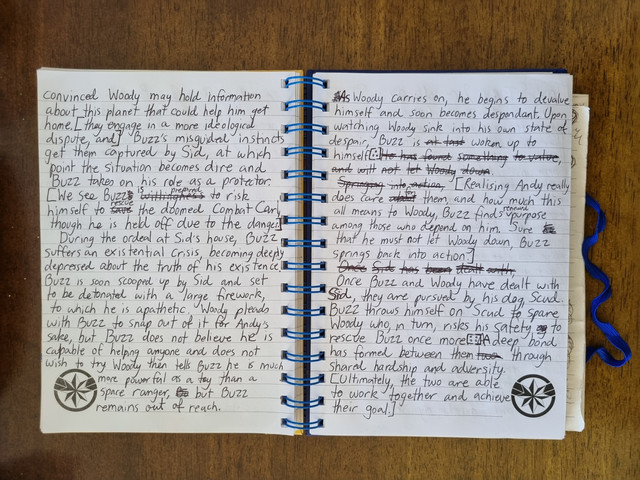 convinced Woody may hold information
about this planet that could help him get
home. [they engage in a more ideological
dispute, and] Buzz's misguided instincts
get them captured by Sid, at which
point the situation becomes dire and
Buzz takes on his role as a protector.
[We see Buzz is willingness prepared to risk
himself to save rescue the doomed Combat Carl,
though he is held off due to the danger.]
During the ordeal at Sid's house, Buzz
suffers an existential crisis, becoming deeply
depressed about the truth of his existence.
Buzz is soon scooped up by Sid and set
to be detonated with a large firework,
to which he is apathetic. Woody pleads
with Buzz to snap out of it for Andy's
sake, but Buzz does not believe he is
capable of helping anyone and does not
wish to try. Woody then tells Buzz he is much
more powerful as a toy than a
spare ranger, but Buzz
remains out of reach.
As Woody carries on, he begins to devalue
himself and soon becomes despondant. Upon
watching Woody sink into his own state of
despair, Buzz is at last woken up to
himself[.] He has found something to value,
and will not let Woody down
Springing into action, [Realising Andy really
does care about them, and how much this
all means to Woody, Buzz finds renewed purpose
among those who depend on him. Sure
that he must not let Woody down, Buzz
springs back into action.]
Once Sids has been dealt with,
Once Buzz and Woody have dealt with
Sid, they are pursued by his dog Scud.
Buzz throws himself on Scud to spare
Woody who, in turn, risks his safety to
rescue Buzz once more[.] A deep bond
has formed between them through
shared hardship and adversity.
[Ultimately, the two are able
to work together and achieve
their goal.]